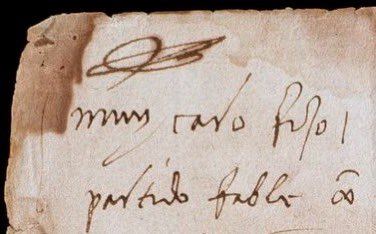 muy caro fijo
partido fable